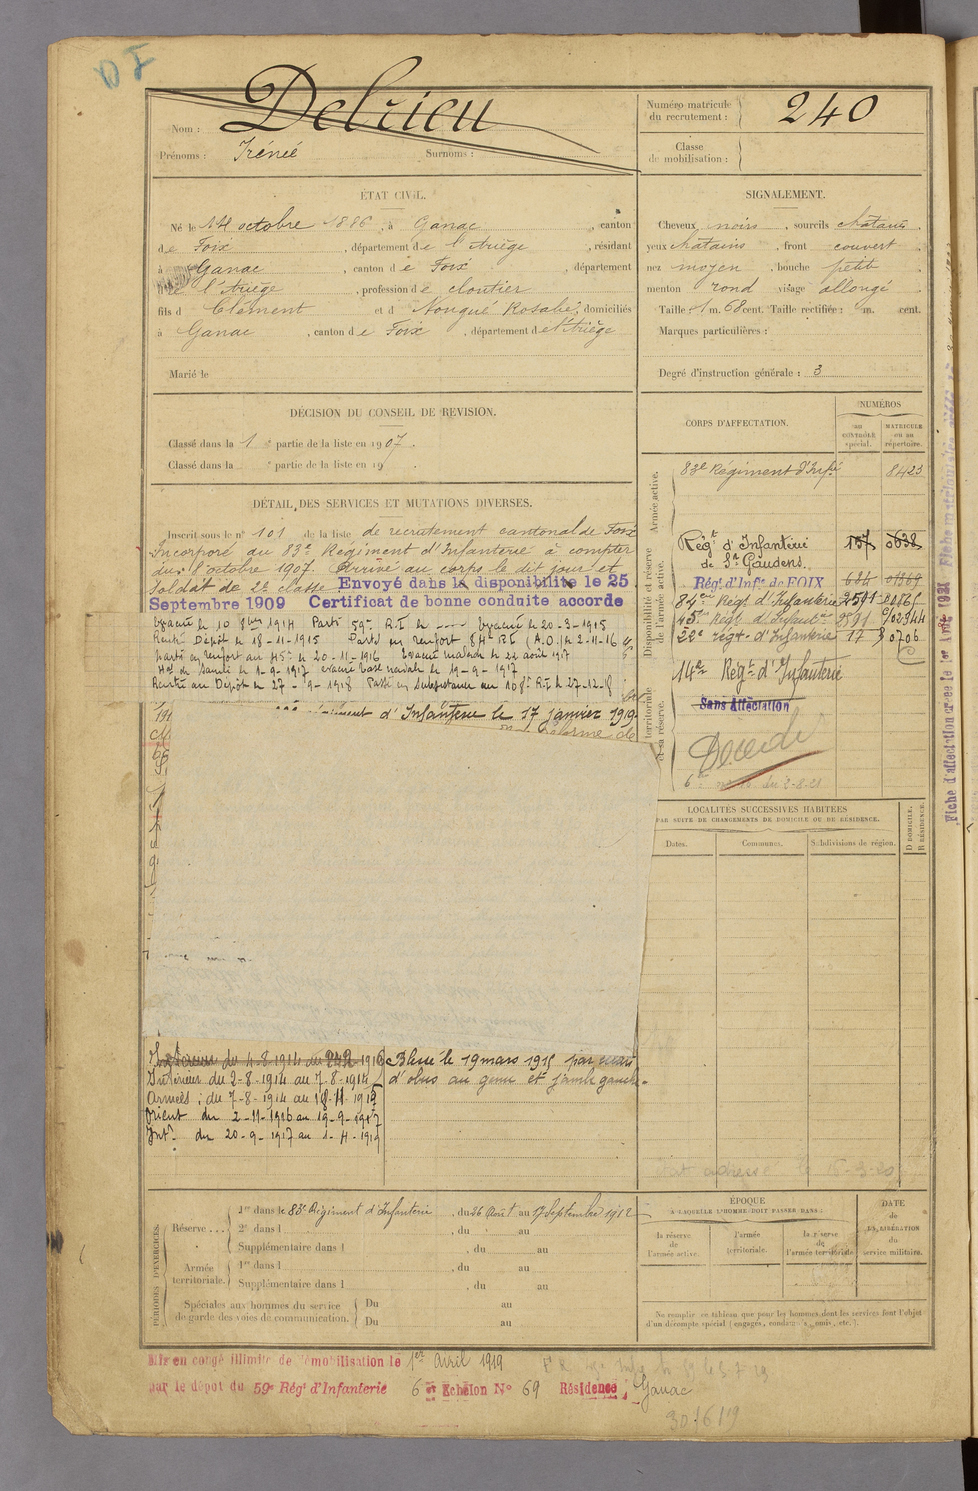 DF
Nom : Delrieu
Prénoms : Irénée Surnoms :
Numéro matricule du recrutement : 240
Classe de mobilisation :
ÉTAT CIVIL.
Né le 14 octobre 1886, à Ganac, canton
de Foix, département de l'Ariège, résidant
à Ganac, canton de Foix, département
de l'Ariège, profession de cloutier
fils de Clément et de Nougué Rosalie, domiciliés
à Ganac, canton de Foix, département de l'Ariège
Marié le
SIGNALEMENT.
Cheveux noirs, sourcils châtains
yeux châtains, front couvert
nez moyen, bouche petite
menton rond visage allongé
Taille : 1 m. 68 cent. Taille rectifiée : m. cent.
Marques particulières :
Degré d'instruction générale : 3
DÉCISION DU CONSEIL DE REVISION.
Classé dans la 1e partie de la liste en 1907.
Classé dans la e partie de la liste en 19 .
DÉTAIL DES SERVICES ET MUTATIONS DIVERSES.
Inscrit sous le n° 101 de la liste de recrutement cantonal de Foix
Incorporé au 83e Régiment d'Infanterie à compter
du 8 octobre 1907. Arrivé au corps le dit jour et
soldat de 2e classe. Envoyé dans la disponibilité le 25
Septembre 1909 Certificat de bonne conduite accordé
Evacué le 10 8bre 1914 Parti 59e R.I. le Evacué le 20-3-1915
Rentré Dépôt le 18-11-1915 Parti en renfort 84e R.I. (A.O.) le 2-11-16
Parti en renfort au 45e le 20-11-1916 Evacué malade le 22 août 1917
le 1-9-1917 évacué malade le 19-9-1917
Rentré au Dépôt le 27-9-1918 Passé au 108e R.I. le 27-12-18
régiment d'Infanterie le 17 janvier 1919
Réforme de
Intérieur du 2-8-1914 au 7-8-1914
Armées : du 7-8-1914 au 18-11-1915
Orient du 2-11-1916 au 19-9-1917
Int. du 20-9-1917 au 1-4-1919
Blessé le 19 mars 1915 par éclat
d'obus au genou et jambe gauche.
CORPS D'AFFECTATION.
NUMÉROS
au CONTRÔLE spécial.
MATRICULE ou au répertoire.
Armée active.
83e Régiment d'Infie 8423
Disponibilité et réserve de l'armée active.
Régt d'Infanterie de St Gaudens. 157 0638
Régt d'Infie de FOIX 624 01869
84e Régt d'Infanterie 2591
45e Régt d'Infanterie 2591 02344
22e régt d'Infanterie 17 0706
territoriale et sa réserve.
14e Régt d'Infanterie
Sans Affectation
Décédé
LOCALITÉS SUCCESSIVES HABITÉES
PAR SUITE DE CHANGEMENTS DE DOMICILE OU DE RÉSIDENCE.
Dates. Communes. Subdivisions de région. D DOMICILE. R RÉSIDENCE.
état adressé le 15-3-20
PÉRIODES D'EXERCICES.
Réserve... 1re dans le 83e Régiment d'Infanterie, du 26 Août au 17 Septembre 1912
2e dans l , du au
Supplémentaire dans l , du au
Armée territoriale. 1re dans l , du au
Supplémentaire dans l , du au
Spéciales aux hommes du service de garde des voies de communication. Du au
Du au
ÉPOQUE
A LAQUELLE L'HOMME DOIT PASSER DANS :
la réserve de l'armée active. l'armée territoriale. la réserve de l'armée territoriale.
DATE de LA LIBÉRATION du service militaire.
Ne remplir ce tableau que pour les hommes dont les services font l'objet
d'un décompte spécial (engagés, condamnés, omis, etc.).
Mis en congé illimité de démobilisation le 1er Avril 1919
par le dépôt du 59e Régt d'Infanterie 6e Echelon N° 69 Résidence : Ganac
30/6/19